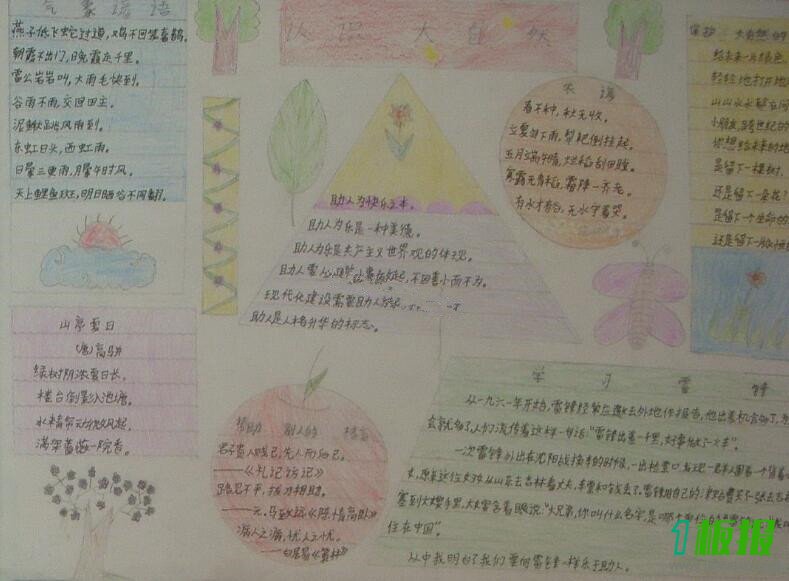 气象谚语
燕子低飞蛇过道,鸡不回笼喜鹊。
朝霞不出门,晚霞走千里。
雷公岩岩叫,大雨毛快到。
谷雨不雨,交回田主。
泥鳅跳风雨到。
东虹日头,西虹雨。
日晕三更雨,月晕午时风。
天上鲤鱼斑,明日晒谷不用翻。
山亭夏日
(唐)高骈
绿树阴浓夏日长,
楼台倒影入池塘。
水精帘动微风起,
满架蔷薇一院香。
认识大自然
助人为快乐之本。
助人为乐是一种美德。
助人为乐是共产主义世界观的体现。
助人要从小事做起,不因善小而不为。
现代化建设需要助人
助人是人格升华的标志。
农谚
春不种,秋无收。
立夏不下雨,犁耙倒挂起。
五月端午晴,烂稻刮田塍。
寒露无青稻,霜降一齐老。
有水才有谷,无水守着哭。
帮助别人的格言
君子贵人贱己,先人而后己。
——《礼记·访记》
路见不平,拔刀相助。
——元·马致远《陈情高卧》
保护大自然的
给未来一片绿色
轻轻地打开地
山山水水都在问
小朋友,跨世纪的
你想给未来的地
是留下一棵树,
还是留下一朵花?
是留下一个生命的
学习雷锋
从一九六一年开始,雷锋经常应邀去外地作报告,他出差机会多了,为
会就多了,人们流传着这样一句话:“雷锋出差一千里,好事做了一火车”。
一次雷锋外出在沈阳站换车的时候,一出检票口,发现一群人围着一个背着
塞到大嫂手里,大嫂含着眼泪说:“大兄弟,你叫什么名字,是哪
住在中国”。
从中我明白了我们要向雷锋一样乐于助人。
板报